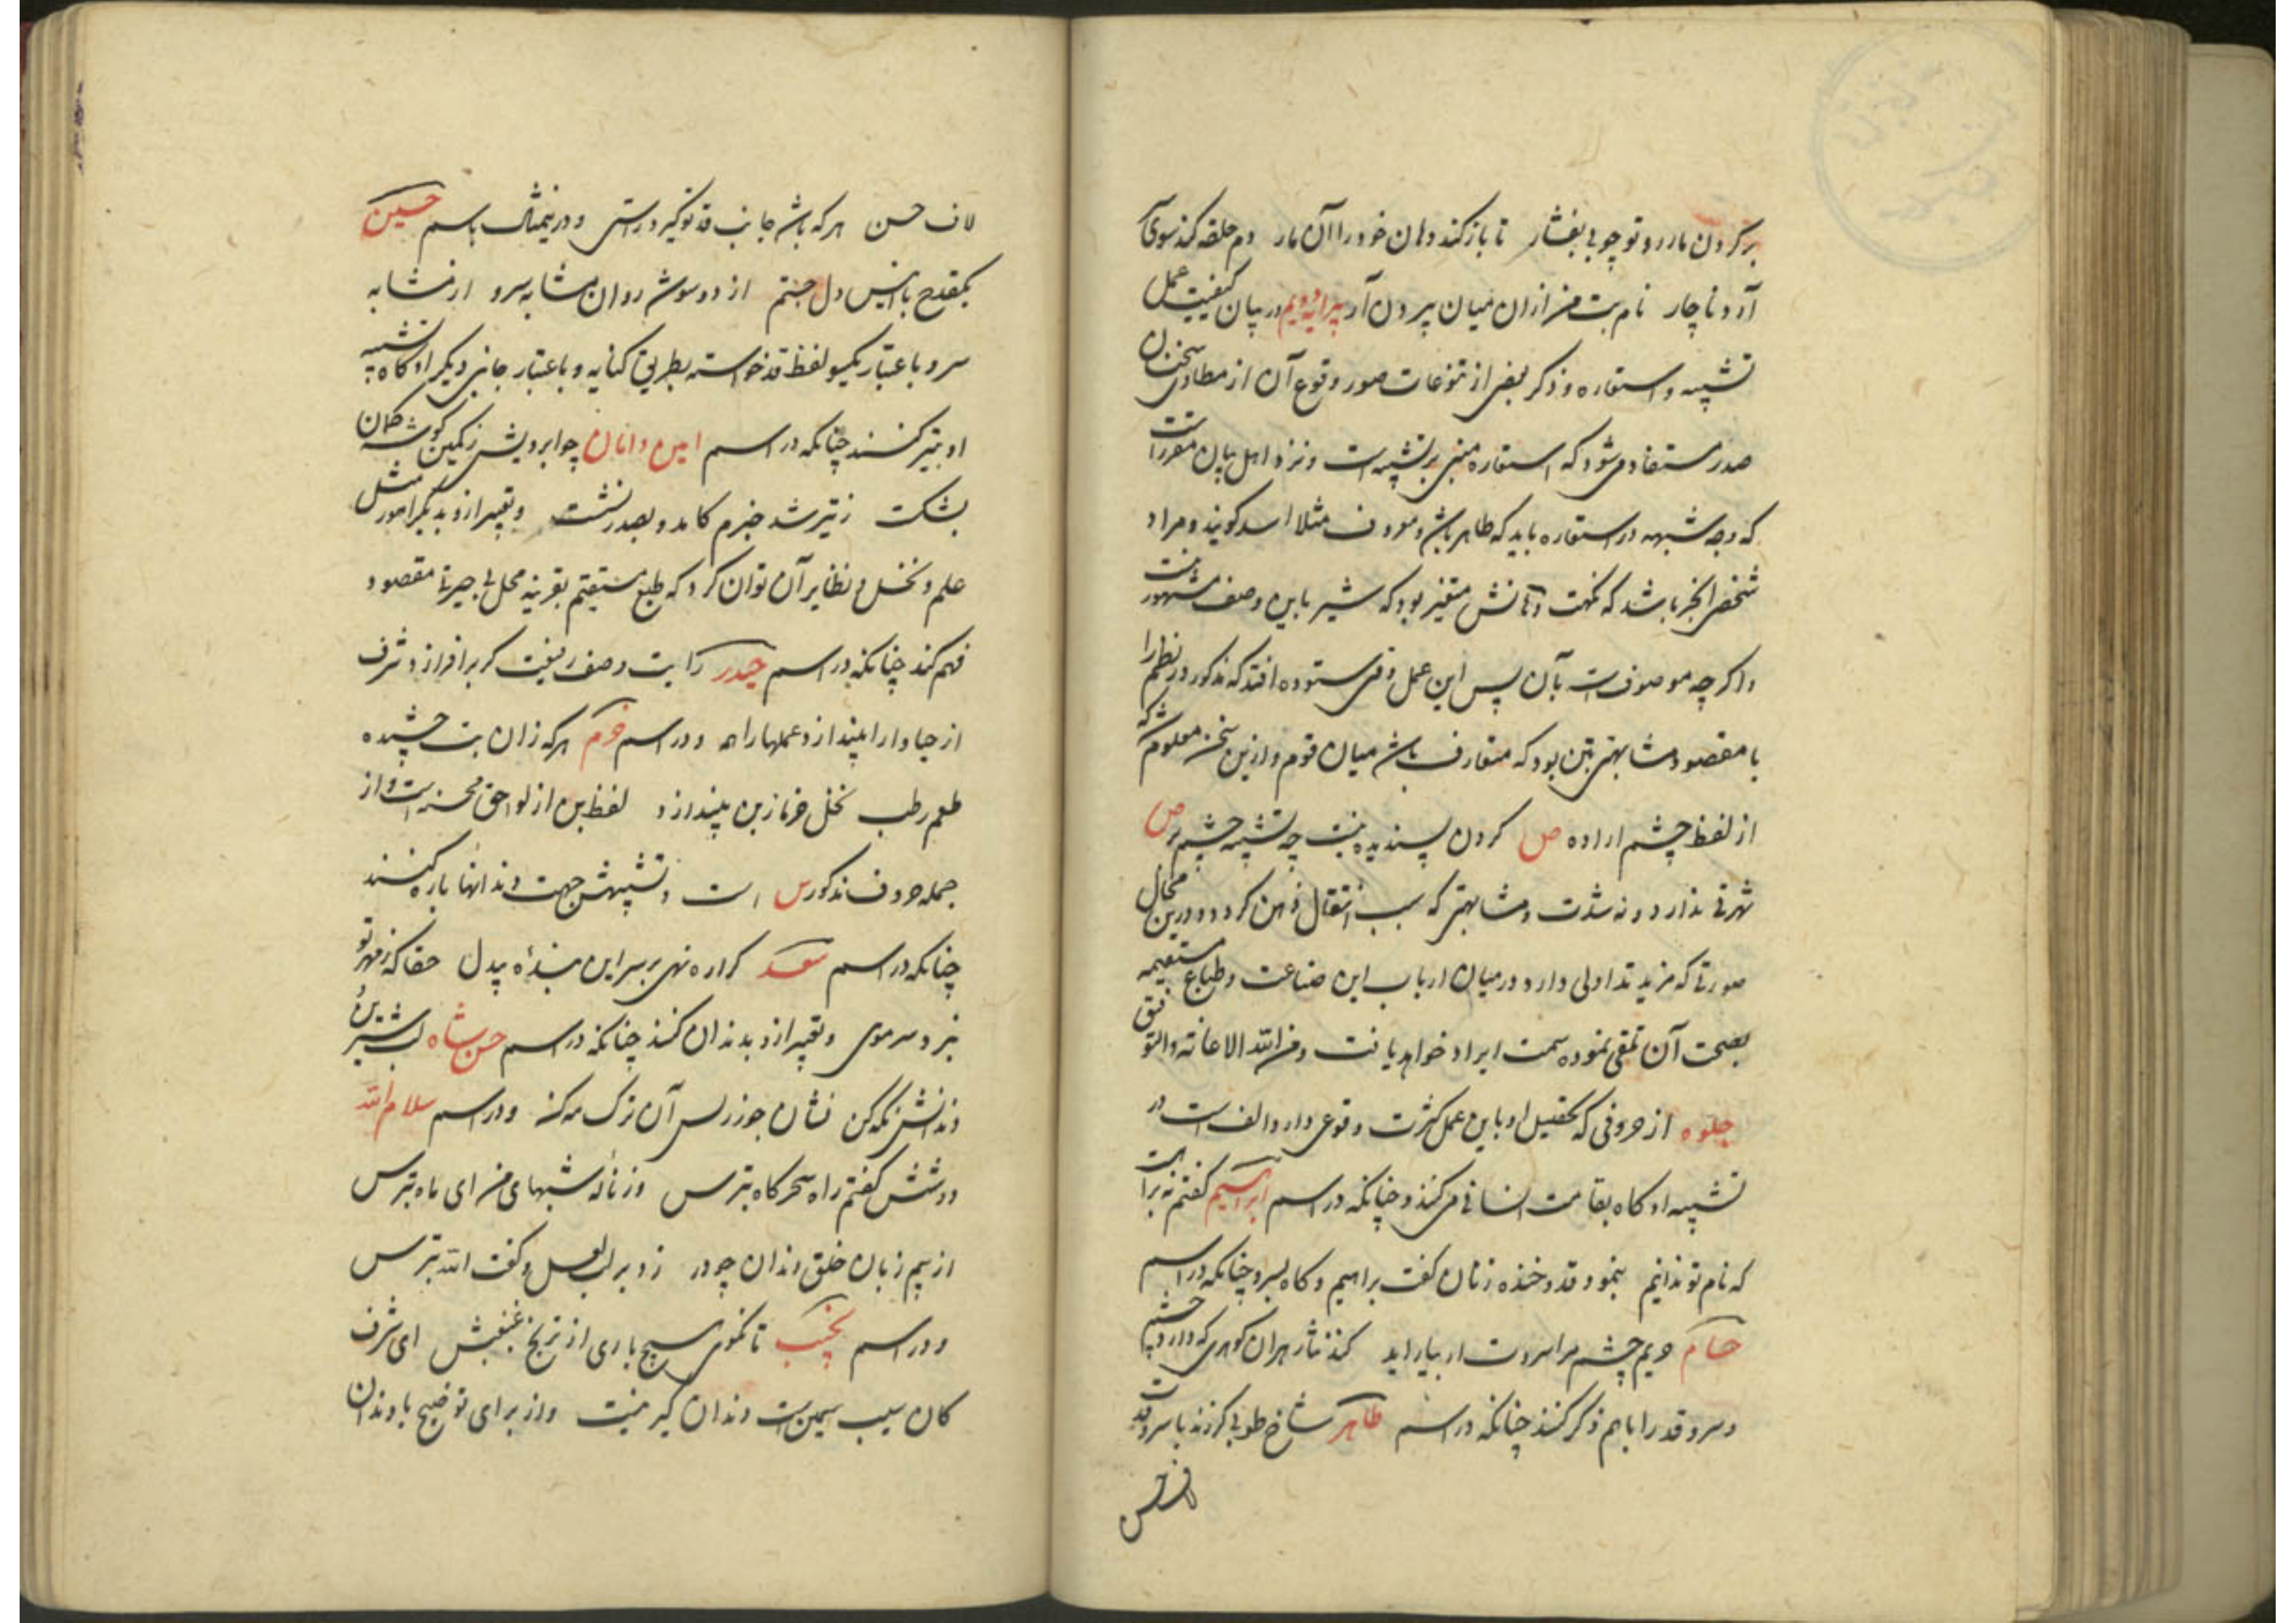 بر گردن مار رو تو چوبی بفشار تا باز کند دهان خود را آن مار دم حلقه کند سوی
آرد ناچار نام بت من ازان میان پیرون آر پیرایه دویم در بیان کیفیت عمل
تشبیه و استعاره و ذکر بعضی از تنوعات صور وقوع آن از مطاوی سخنان
صدر مستفاد میشود که استعاره مبنی بر تشبیه است و نزد اهل بیان مقرر است
که وجه شبهه در استعاره باید که ظاهر باشد و معروف مثلا اسد گویند و مراد
شخص ابخر باشد که نکهت دهانش متغیر بود که شیر باین وصف مشهور نیست
و اگر چه موصوفست بآن پس این عمل وقتی ستوده افتد که مذکور در نظم را
با مقصود مشابهتی بین بود که متعارف باشد میان قوم و ازین سخن معلوم شد که
از لفظ چشم اراده ص کردن پسندیده نیست چه تشبیه چشم بر ص
شهرتی ندارد و نه شدت مشابهتی که سبب انتقال ذهن گردد و درین محال
صورتها که مزید تداولی دارد در میان ارباب این صناعت و طباع مستقیمه
بصحت آن تلقی نموده سمت ایراد خواهد یافت و من الله الاعانة والتوفیق
جلوه از حروفی که تحصیل او باین عمل کثرت وقوعی دارد الف است در
تشبیه او گاه بقامت انسانی میکنند چنانکه در اسم ابراهیم گفتم بت
که نام تو ندانیم بنمود قد و خنده زنان گفت براهیم و گاه بسرو چنانکه در اسم
حسام چشم مرا سروت ار بیاراید کند نثار هران گوهری که دارد چشم
و سرو قد را با هم ذکر کنند چنانکه در اسم طاهر شاخ طوبی گر زند با سرو قدت
لاف حسن
لاف حسن هر که باشد جانب قد تو گیرد راستی و در تمثال باسم حسین
یکقدح با انیس دل جستم از دو سوش روان مشابه سرو از مشابه
سرو باعتبار یکسو لفظ قد خواسته بطریق کنایه و باعتبار جانب دیگر او گاه تشبیه
او بتیر کنند چنانکه در اسم امین و امان چو ابرویش ز کمین گوشه کمان
بشکست ز تیر شد خبرم کامد و بصدر نشست و تعبیر ازو بدیگر امور مثل
علم و نخل و نظایر آن توان کرد که طبع مستقیم بقرینه محل بی حیرتا مقصود
فهم کند چنانکه در اسم حیدر رایت وصف رفیعت گر بر افرازد شرف
از حیا دارا بیندازد علمها را همه و در اسم خرم هر که زان بت چشیده
طعم رطب نخل خرما ز بن بیندازد لفظ بن از لواحق محسنه است و از
جمله حروف مذکور س است و تشبیهش جهت دندانها باره کنند
چنانکه در اسم سعد گر اره نهی بر سر این بنده بیدل حقا که ز مهر تو
نبرد سر موی و تعبیر ازو بدندان کنند چنانکه در اسم حسن شاه لب شیرین
دندانش نگه کن نشان جوز لب آن ترک مه کنه و در اسم سلام الله
دوشش گفتم راه سحرگاه بترس وز ناله شبهای من ای ماه بترس
از بیم زبان خلق دندان چو در زد بر لب لعل و گفت الله بترس
و در اسم نجیب تا نگوی هیچ باری از ترنج غبغبش ای شرف
کان سیب سیمین است دندان گیر نیست و از برای توضیح با دندان